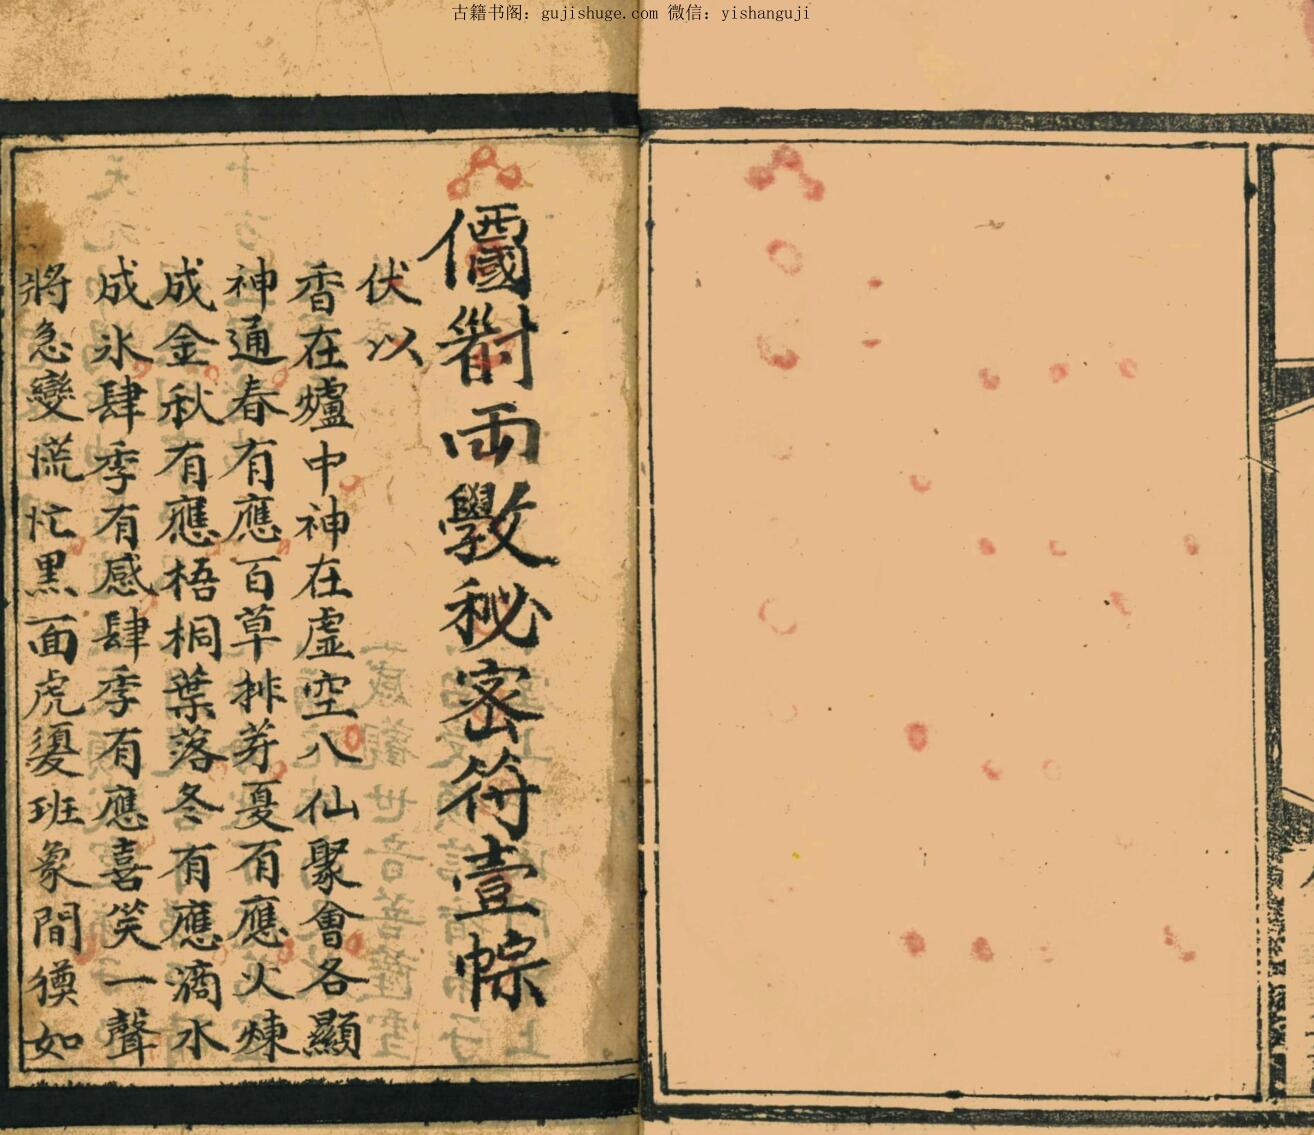 古籍书阁：gujishuge.com 微信：yishanguji
兩教秘密符壹
伏以
香在爐中神在虛空八仙聚會各顯
神通春有應百草排芽夏有應火煉
成金秋有應梧桐葉落冬有應滴水
成氷肆季有感肆季有應喜笑一聲
將急變慌忙黑面虎班象間獏如